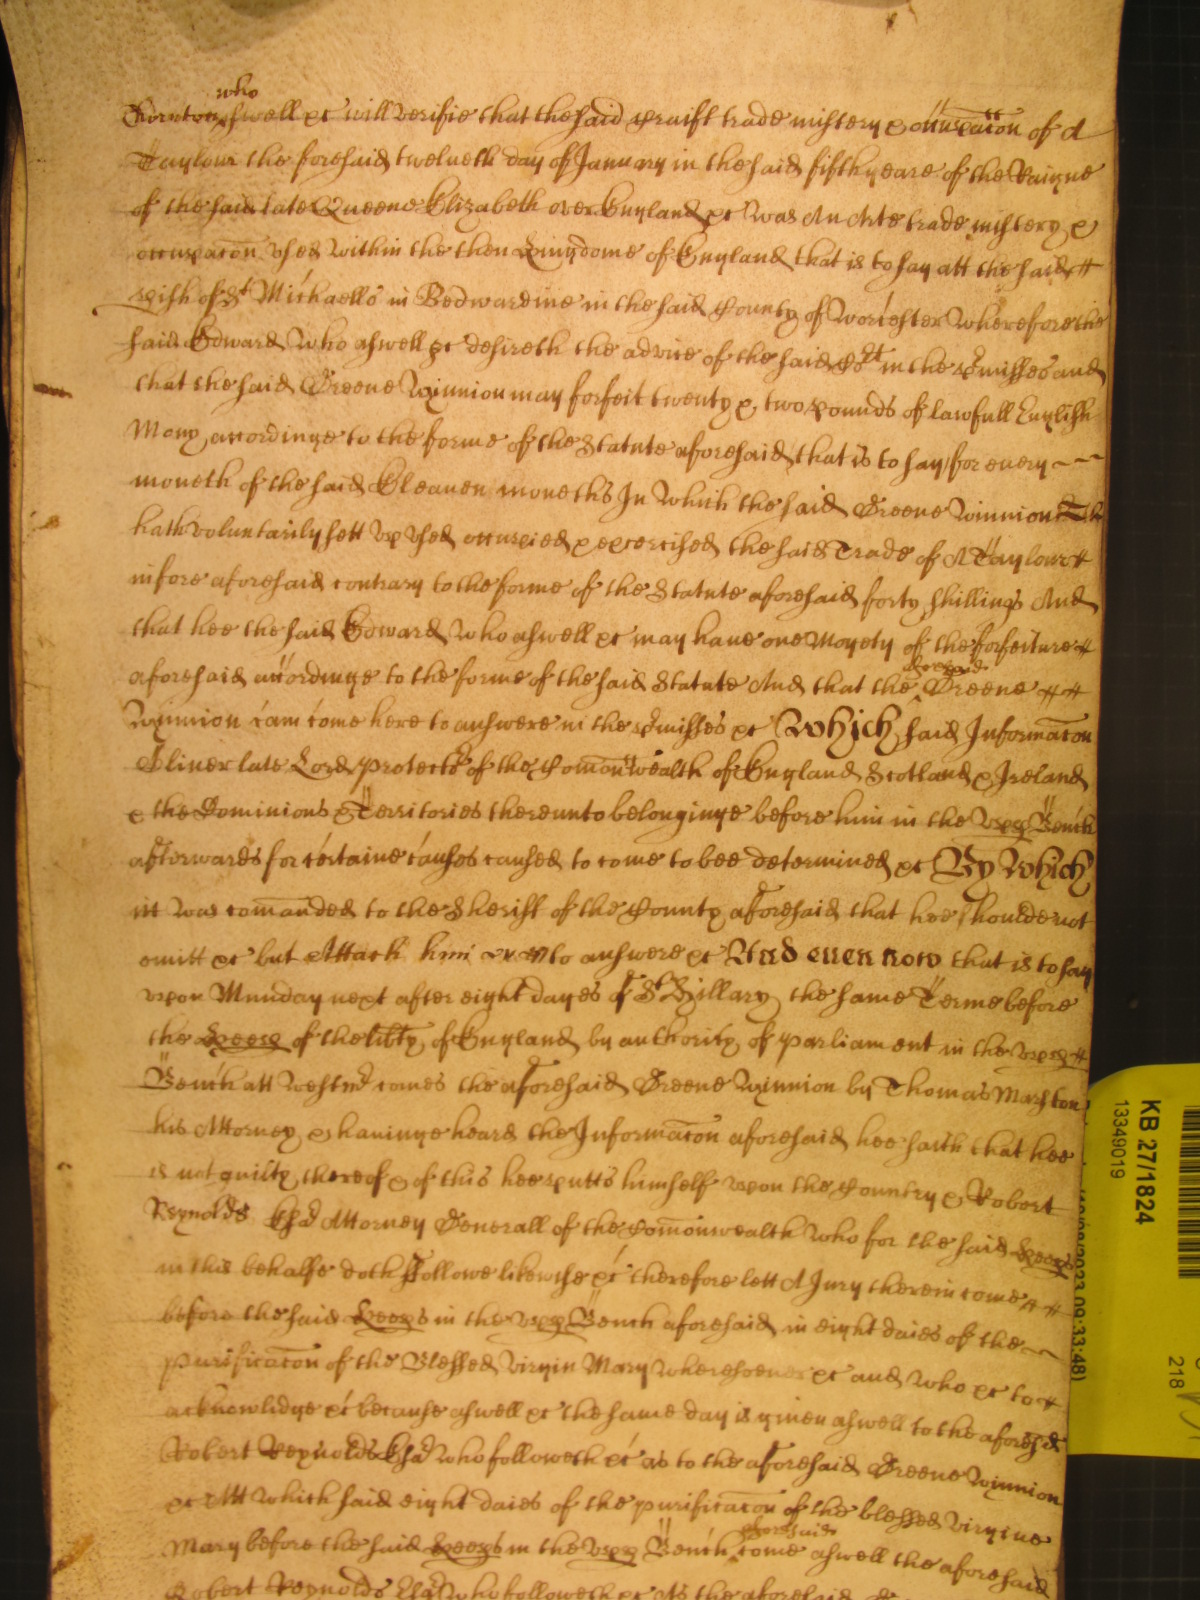 who
Thornton aswell &c will verifie that the said Craift trade mistery & occupacon of A
Taylour the foresaid twelueth day of January in the said fifth yeare of the Raigne
of the said late Queene Elizabeth over England &c was An Arte trade mistery &
occupacon vsed within the then Kingdome of England that is to say att the said
pish of St Michaells in Bedwardine in the said County of Worcester Wherefore the
said Edward Who aswell &c desireth the advice of the said Cort in the pmisses and
that the said Greene Winnion may forfeit twenty & two pounds of lawfull English
Mony accordinge to the forme of the Statute aforesaid that is to say for euery
moneth of the said Eleauen moneths In Which the said Greene Winnion
hath voluntarily sett vp vsed occupied & exercised the said Trade of A Taylour
in fore aforesaid contrary to the forme of the Statute aforesaid forty shillings And
that hee the said Edward Who aswell &c may haue one Moyety of the forfeiture
aforesaid accordinge to the forme of the said Statute And that the Greene
aforesaid
Winnion cam come here to answere in the pmisses &c Which said Informacon
Oliuer late Lord protector of the Comonwealth of England Scotland & Ireland
& the Dominions & Territories thereunto belonginge before him in the vpp Bench
afterwards for certaine causes caused to come to bee determined &c By Which
itt was comanded to the Sheriff of the County aforesaid that hee shoulde not
omitt &c but Attach him to answere &c And euen now that is to say
vpon Munday next after eight dayes of St Hillary the same Terme before
the Keeps of the libty of England by authority of parliament in the vpp
Bench att Westmr comes the aforesaid Greene Winnion by Thomas Marston
his Attorney & hauinge heard the Informacon aforesaid hee saith that hee
is not guilty thereof & of this hee putts himself vpon the Country & Robert
Reynolds Esqr Attorney Generall of the Comonwealth Who for the said Keeps
in this behalfe doth followe likewise &c therefore lett A Jury therein come
before the said Keeps in the vpp Bench aforesaid in eight daies of the
purificacon of the Blessed Virgin Mary wheresoeuer &c and who &c to
acknowlidge &c because aswell &c the same day is giuen aswell to the aforesd
Robert Reynolds Esqr who followeth &c as to the aforesaid Greene Winnion
&c Att Which said eight daies of the purificacon of the blessed Virgine
aforesaid
Mary before the said Keeps in the vpp Bench come aswell the aforesaid
Robert Reynolds Esqr who followeth &c As the aforesaid
KB 27/1824
13349019
09:33:48)
218